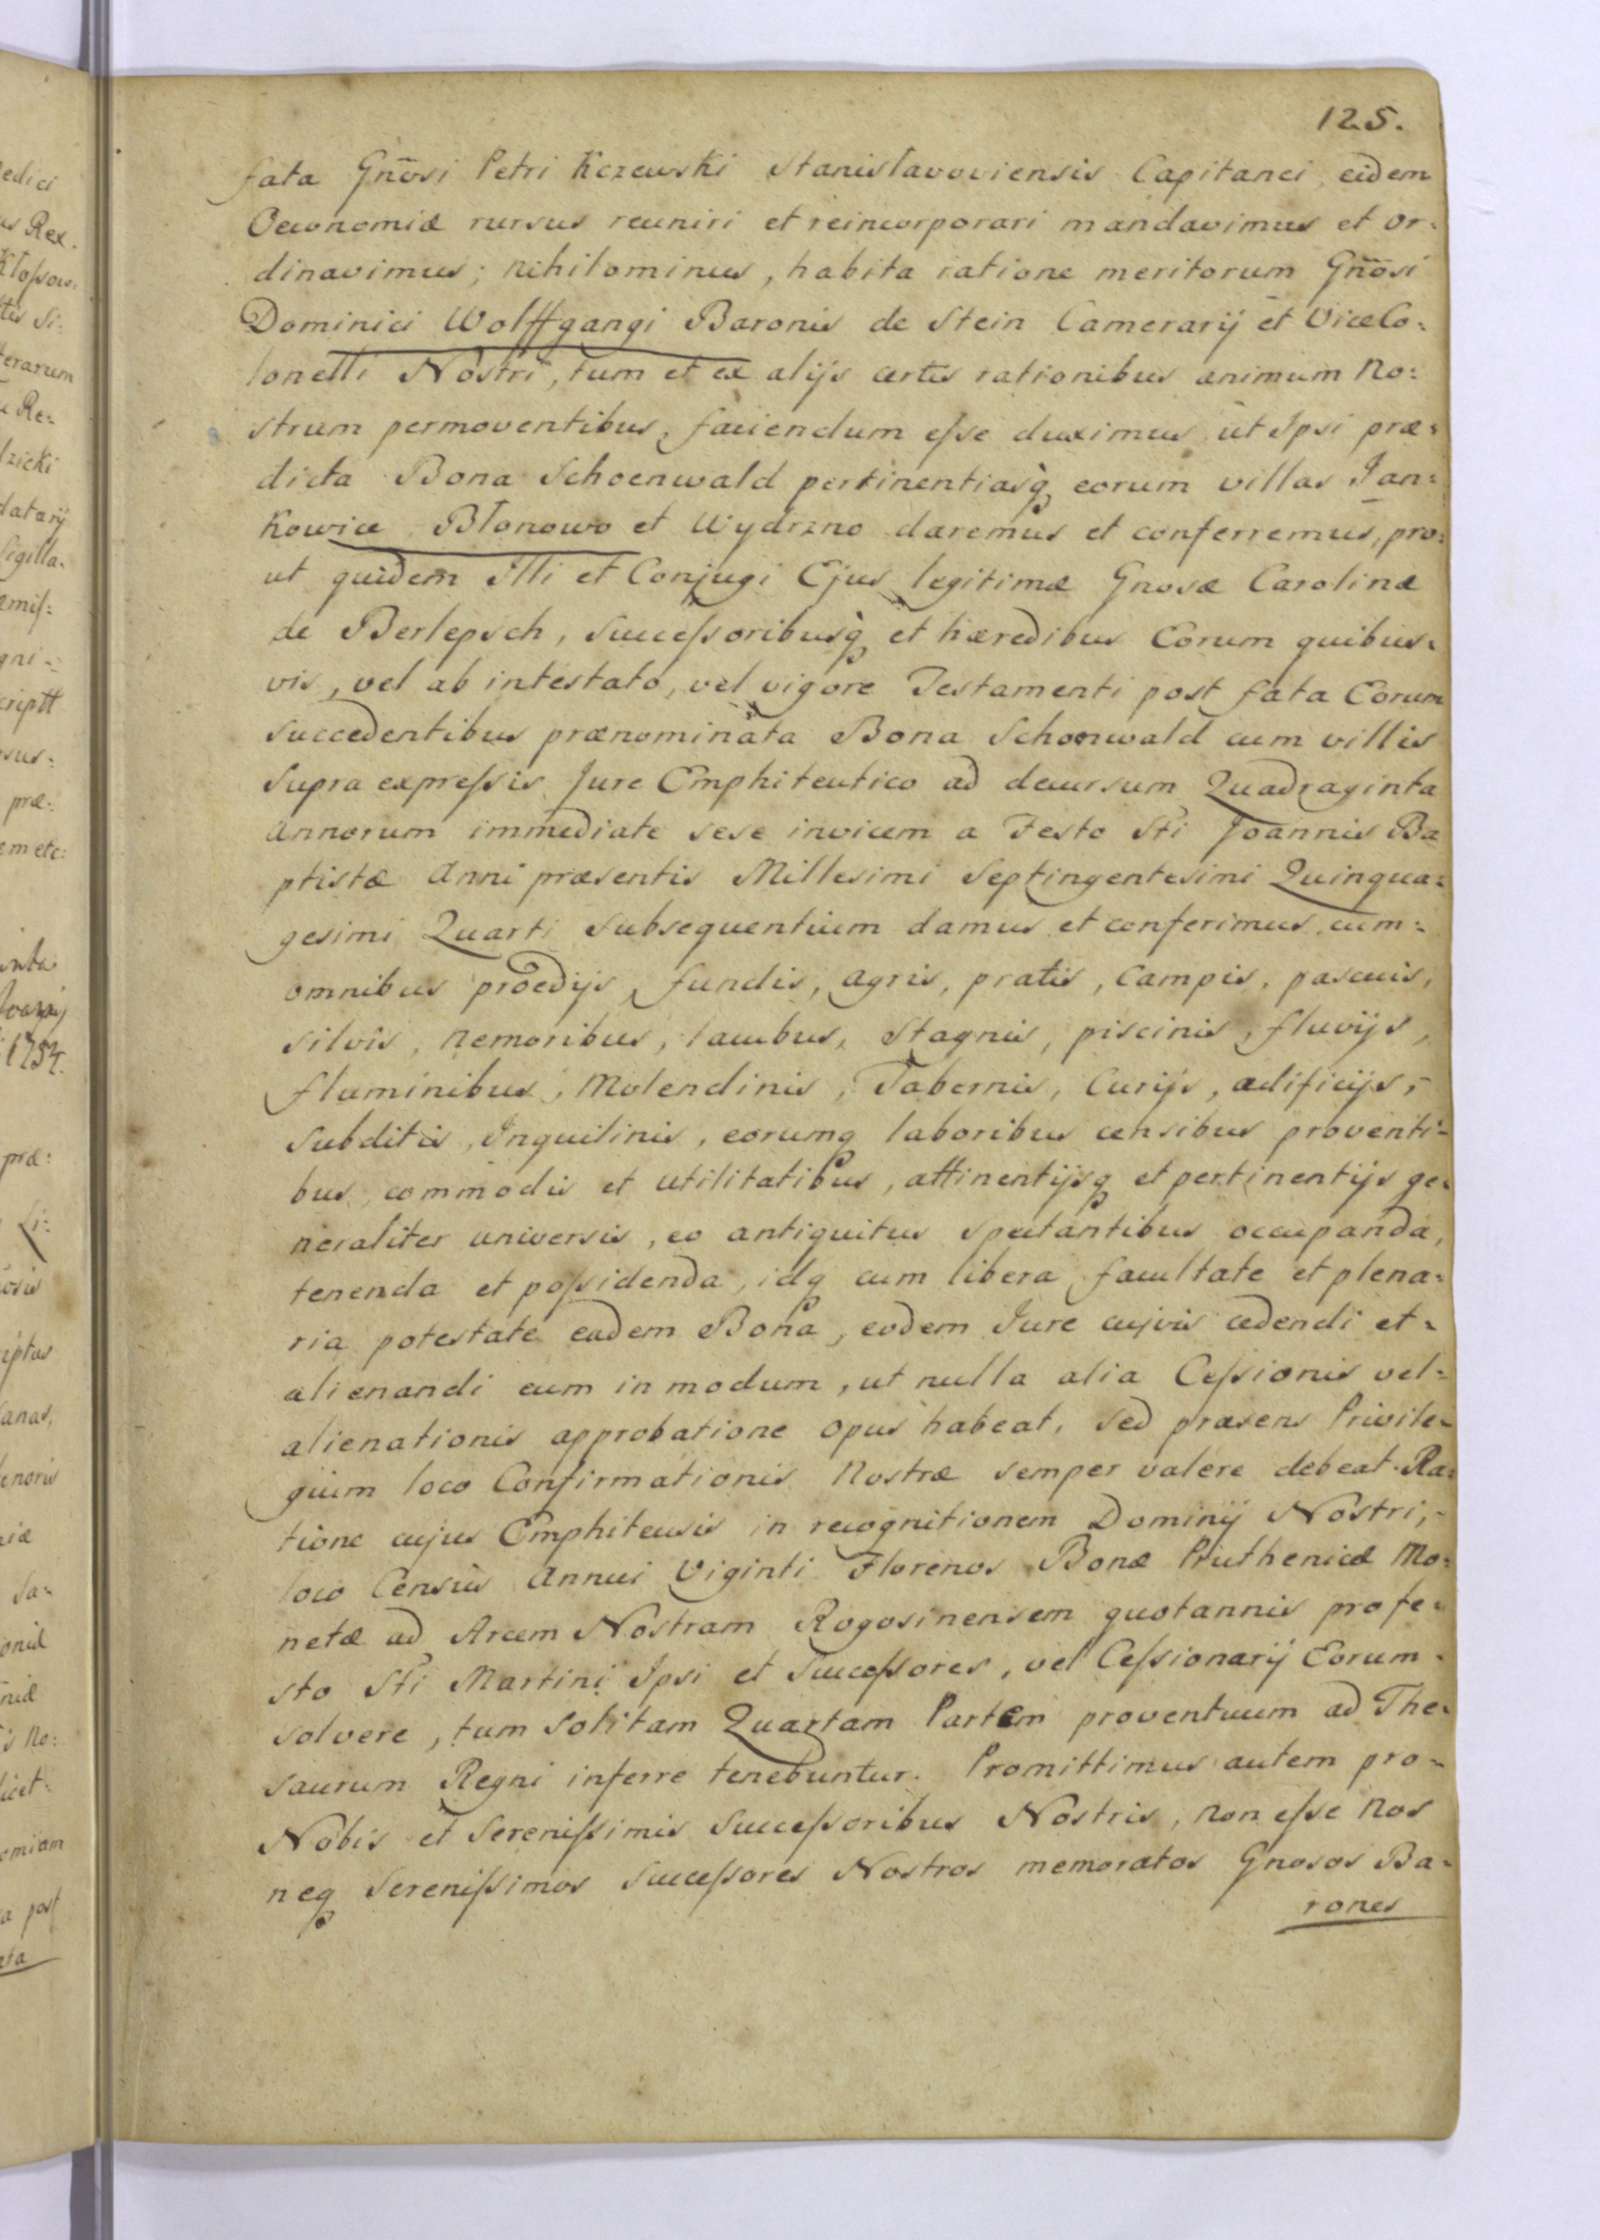 125.
fata Gñosi Petri Kczewski Stanislavoviensis Capitanei, eidem
Oeconomiæ rursus reuniri et reincorporari mandavimus et or=
dinavimus; nihilominus, habita ratione meritorum Gñosi
Dominici Wolffgangi Baronis de Stein Camerarij et ViceCo=
lonelli Nostri, tum et ex alijs certis rationibus animum No=
strum permoventibus, faciendum eſse duximus ut Ipsi præ=
dicta Bona Schoenwald pertinentiasq eorum villas Jan=
kowice Błonowo et Wydrzno daremus et conferremus, pro=
ut quidem Illi et Conjugi Ejus legitimæ Gnosæ Carolinæ
de Berlepsch, Succeſsoribusq et hæredibus Eorum quibus=
vis, vel ab intestato, vel vigore Testamenti post fata Eorum
succedentibus prænominata Bona Schonwald cum villis
Supra expreſsis Jure Emphiteutico ad decursum Quadraginta
Annorum immediate sese invicem a Festo Sti Joannis Ba
ptistæ Anni præsentis Millesimi Septingentesimi Quinqua=
gesimi Quarti subsequentium damus et conferimus cum=
omnibus prœdijs, fundis, agris, pratis, Campis, pascuis,
silvis, nemoribus, lacubus, Stagnis, piscinis, fluvijs,
fluminibus, Molendinis, Tabernis, Curijs, ædificijs,
Subditis, Inquilinis, eorumq laboribus censibus proventi=
bus, commodis et utilitatibus, attinentijsq et pertinentijs ge=
neraliter universis, eo antiquitus spectantibus occupanda,
tenenda et poſsidenda, idq cum libera facultate et plena=
ria potestate eadem Bona, eodem Jure cujvis cedendi et=
alienandi eum in modum, ut nulla alia Ceſsionis vel=
alienationis approbatione opus habeat, sed præsens Privile=
gium loco Confirmationis Nostræ semper valere debeat. Ra=
tione cujus Emphiteusis in recognitionem Dominij Nostri,
loco Censûs Annui Viginti Florenos Bonæ Pruthenicæ Mo=
netæ ad Arcem Nostram Rogosinensem quotannis pro fe=
sto Sti Martini Ipsi et Succeſsores, vel Ceſsionarij Eorum
solvere, tum Solitam Quartam Partem proventuum ad The=
saurum Regni inferre tenebuntur. Promittimus autem pro=
Nobis et Sereniſsimis Succeſsoribus Nostris, non eſse Nos
neq Sereniſsimos Succeſsores Nostros memoratos Gnosos Ba=
rones